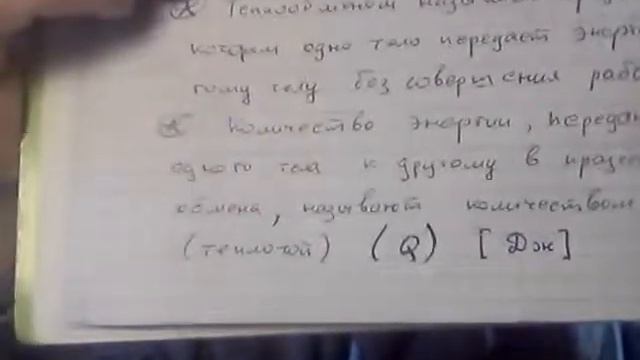 Теплообменом назыв
котором одно тело передает энер
гому телу без совершения рабо
Количество энергии, передан
одного тела к другому в процес
обмена, называют количеством
(теплотой) (Q) [Дж]